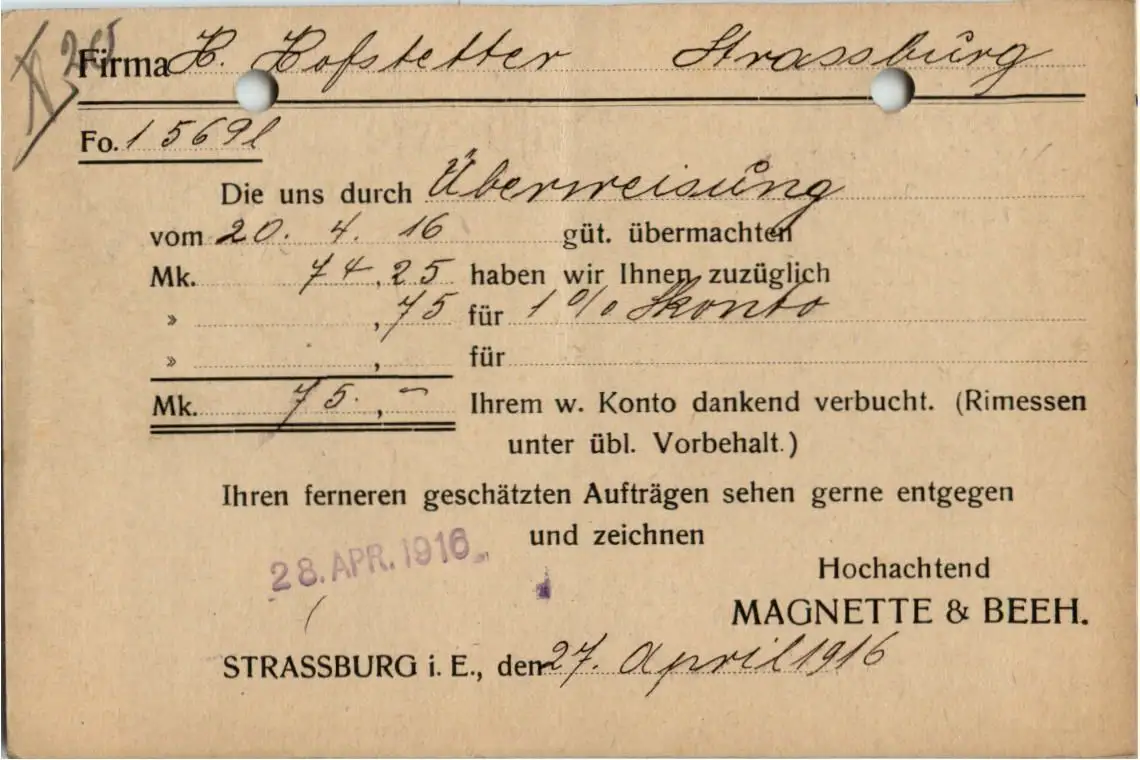 Firma H. Hofstetter Strassburg
Fo. 1569
Die uns durch Überweisung
vom 20. 4. 16 güt. übermachten
Mk. 74,25 haben wir Ihnen zuzüglich
» ,75 für 1 % Skonto
» , für
Mk. 75.,– Ihrem w. Konto dankend verbucht. (Rimessen
unter übl. Vorbehalt.)
Ihren ferneren geschätzten Aufträgen sehen gerne entgegen
und zeichnen
28. APR. 1916
Hochachtend
MAGNETTE & BEEH.
STRASSBURG i. E., den 27. April 1916